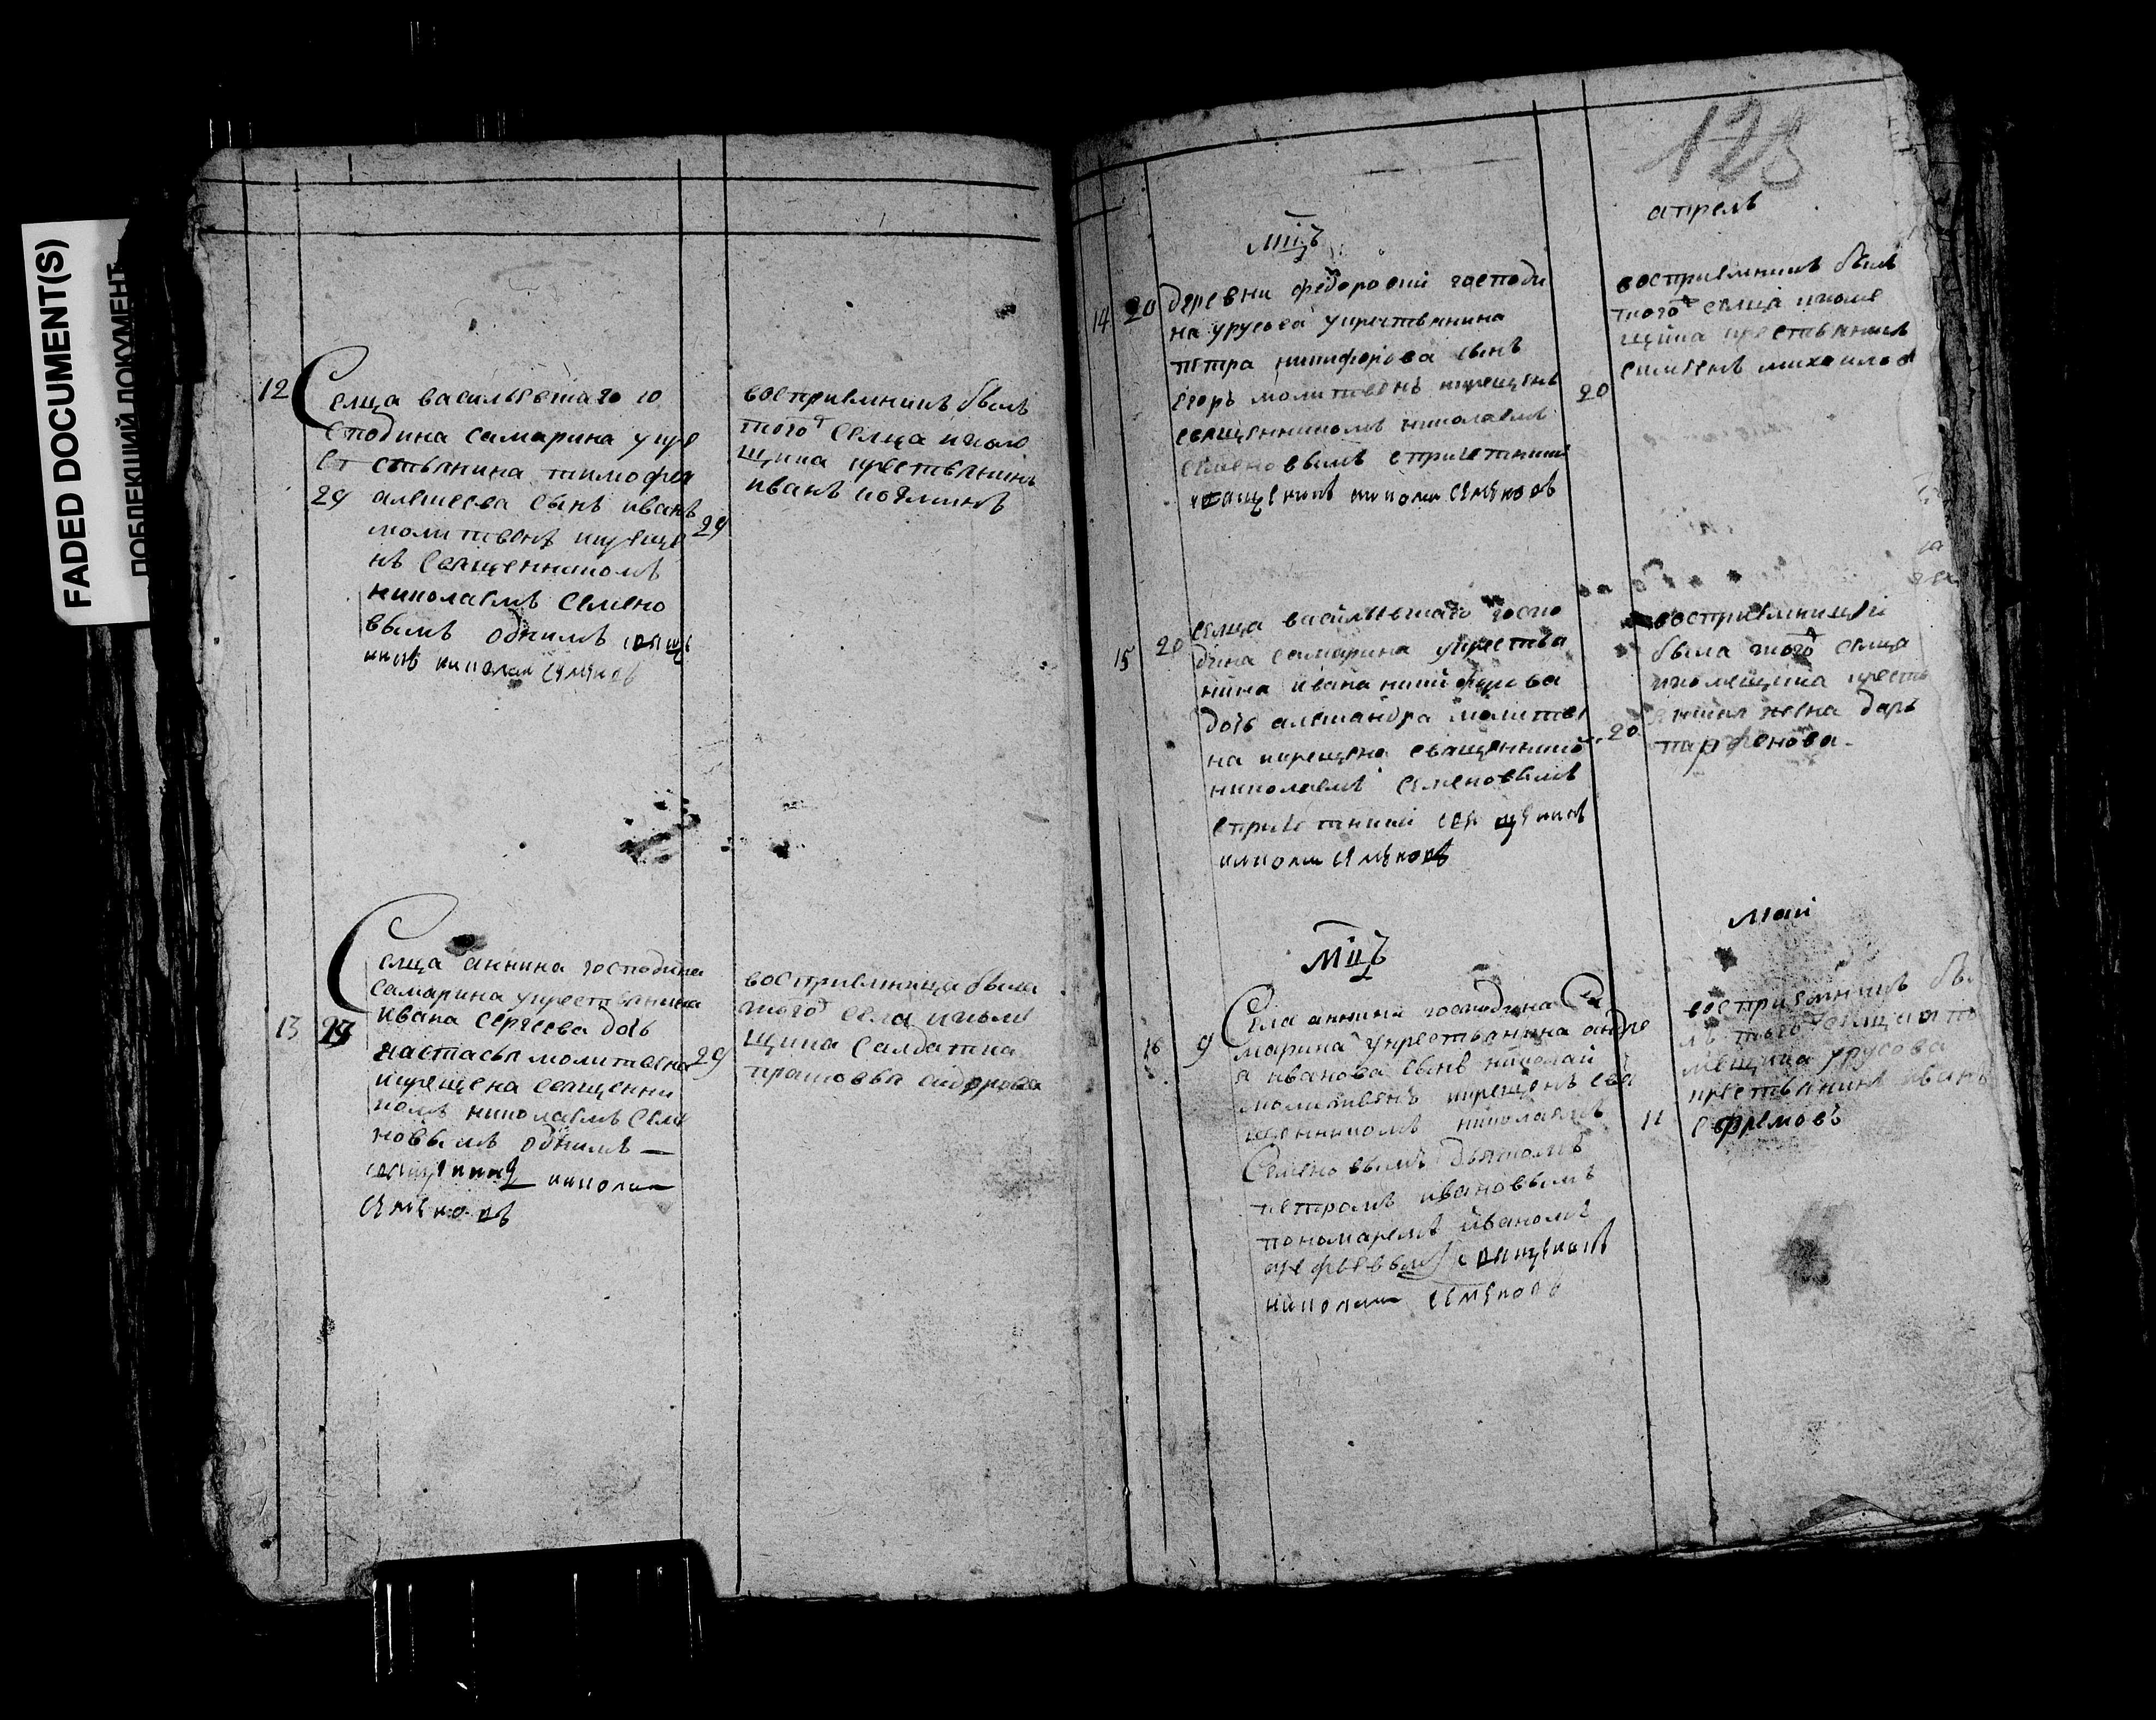 FADED DOCUMENT(S)
ДОКУМЕНТ
12
Селца васильевскаго го
сподина самарина у кре
стьянина тимофея
29 алексеева сынъ иванъ
молитвенъ и креще
нъ священникомъ
николаемъ семено
вымъ однимъ свяще
никъ николаи семеновъ
восприемникъ былъ
того селца
щика крестьянинъ
иванъ
29
13
29
Селца аннина господина
самарина у крестьянина
ивана сергеева дочь
настасья молитвена
и крещена священни
комъ николаемъ семе
новымъ однимъ
священникъ николаи
семеновъ
восприемница была
того села и поме
щика салдатка
прасковья сидорова
29
128
мцъ
апрель
14
20
деревни федоровки господи
на урусова у крестьянина
петра никифорова сынъ
егоръ молитвенъ и крещенъ
священникомъ николаемъ
семеновымъ с причетники
священникъ николаи семеновъ
восприемникъ былъ
того селца и поме
щика крестьянинъ
михаиловъ
20
15
20
селца васильевскаго госпо
дина самарина у крестья
нина ивана никифорова
дочь александра молитве
на и крещена священникомъ
николаемъ семеновымъ
с причетники священникъ
николаи семеновъ
восприемницеи
была того селца
и помещика кресть
янина жена дарья
парфенова
20
мцъ
маи
16
9
Села аннина господина са
марина у крестьянина андре
я иванова сынъ николаи
молитвенъ и крещенъ свя
щенникомъ николаемъ
семеновымъ дьякономъ
петромъ ивановымъ
пономаремъ иваномъ
священникъ
николаи семеновъ
восприемникъ бы
лъ того селца и по
мещика урусова
крестьянинъ иванъ
ефремовъ
11